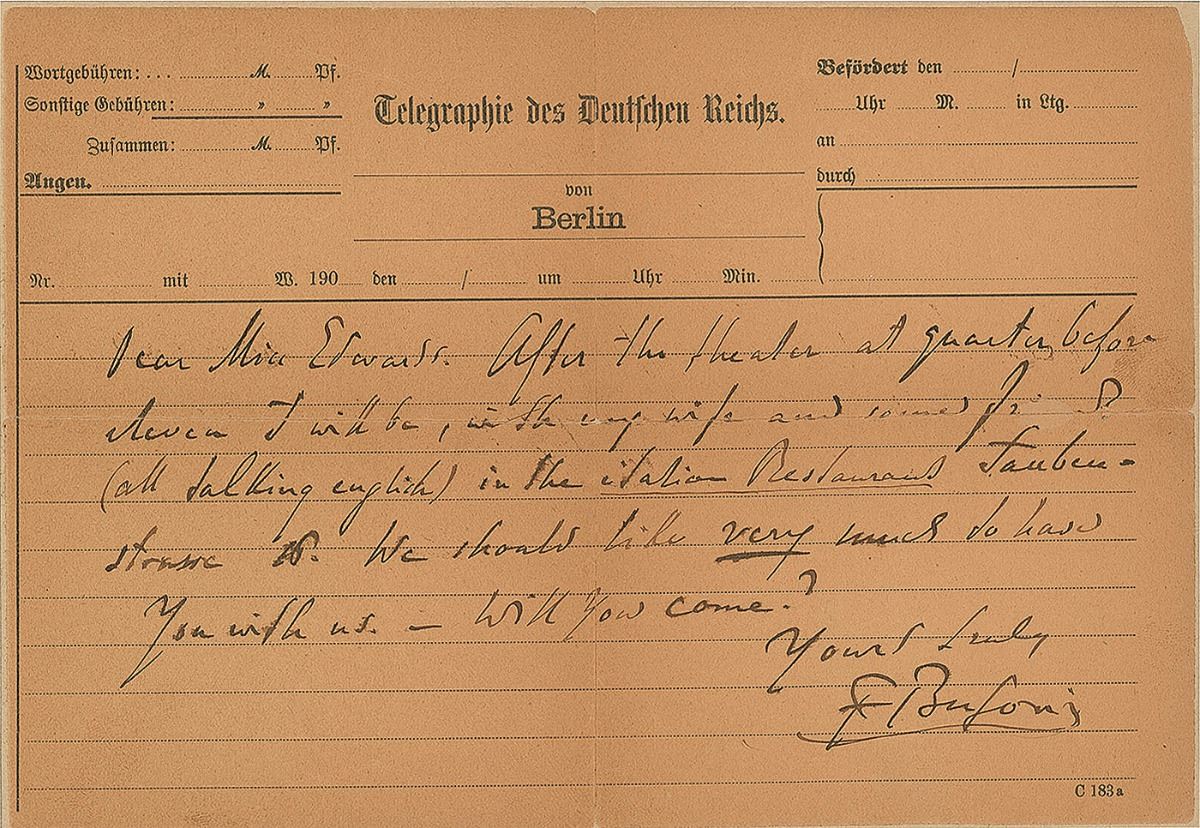 Wortgebühren: . . . M. Pf.
Sonstige Gebühren: " "
Zusammen: M. Pf.
Angen.
Telegraphie des Deutschen Reichs.
von
Berlin
Befördert den /
Uhr M. in Ltg.
an
durch
Nr. mit W. 190 den / um Uhr Min.
Dear Miss Edwards. After the theater at quarter before
eleven I will be, with my wife and some
(all talking english) in the italian Restaurant Tauben-
strasse We should like very much to have
You with us. – Will You come?
Yours truly
F Busoni
C 183a